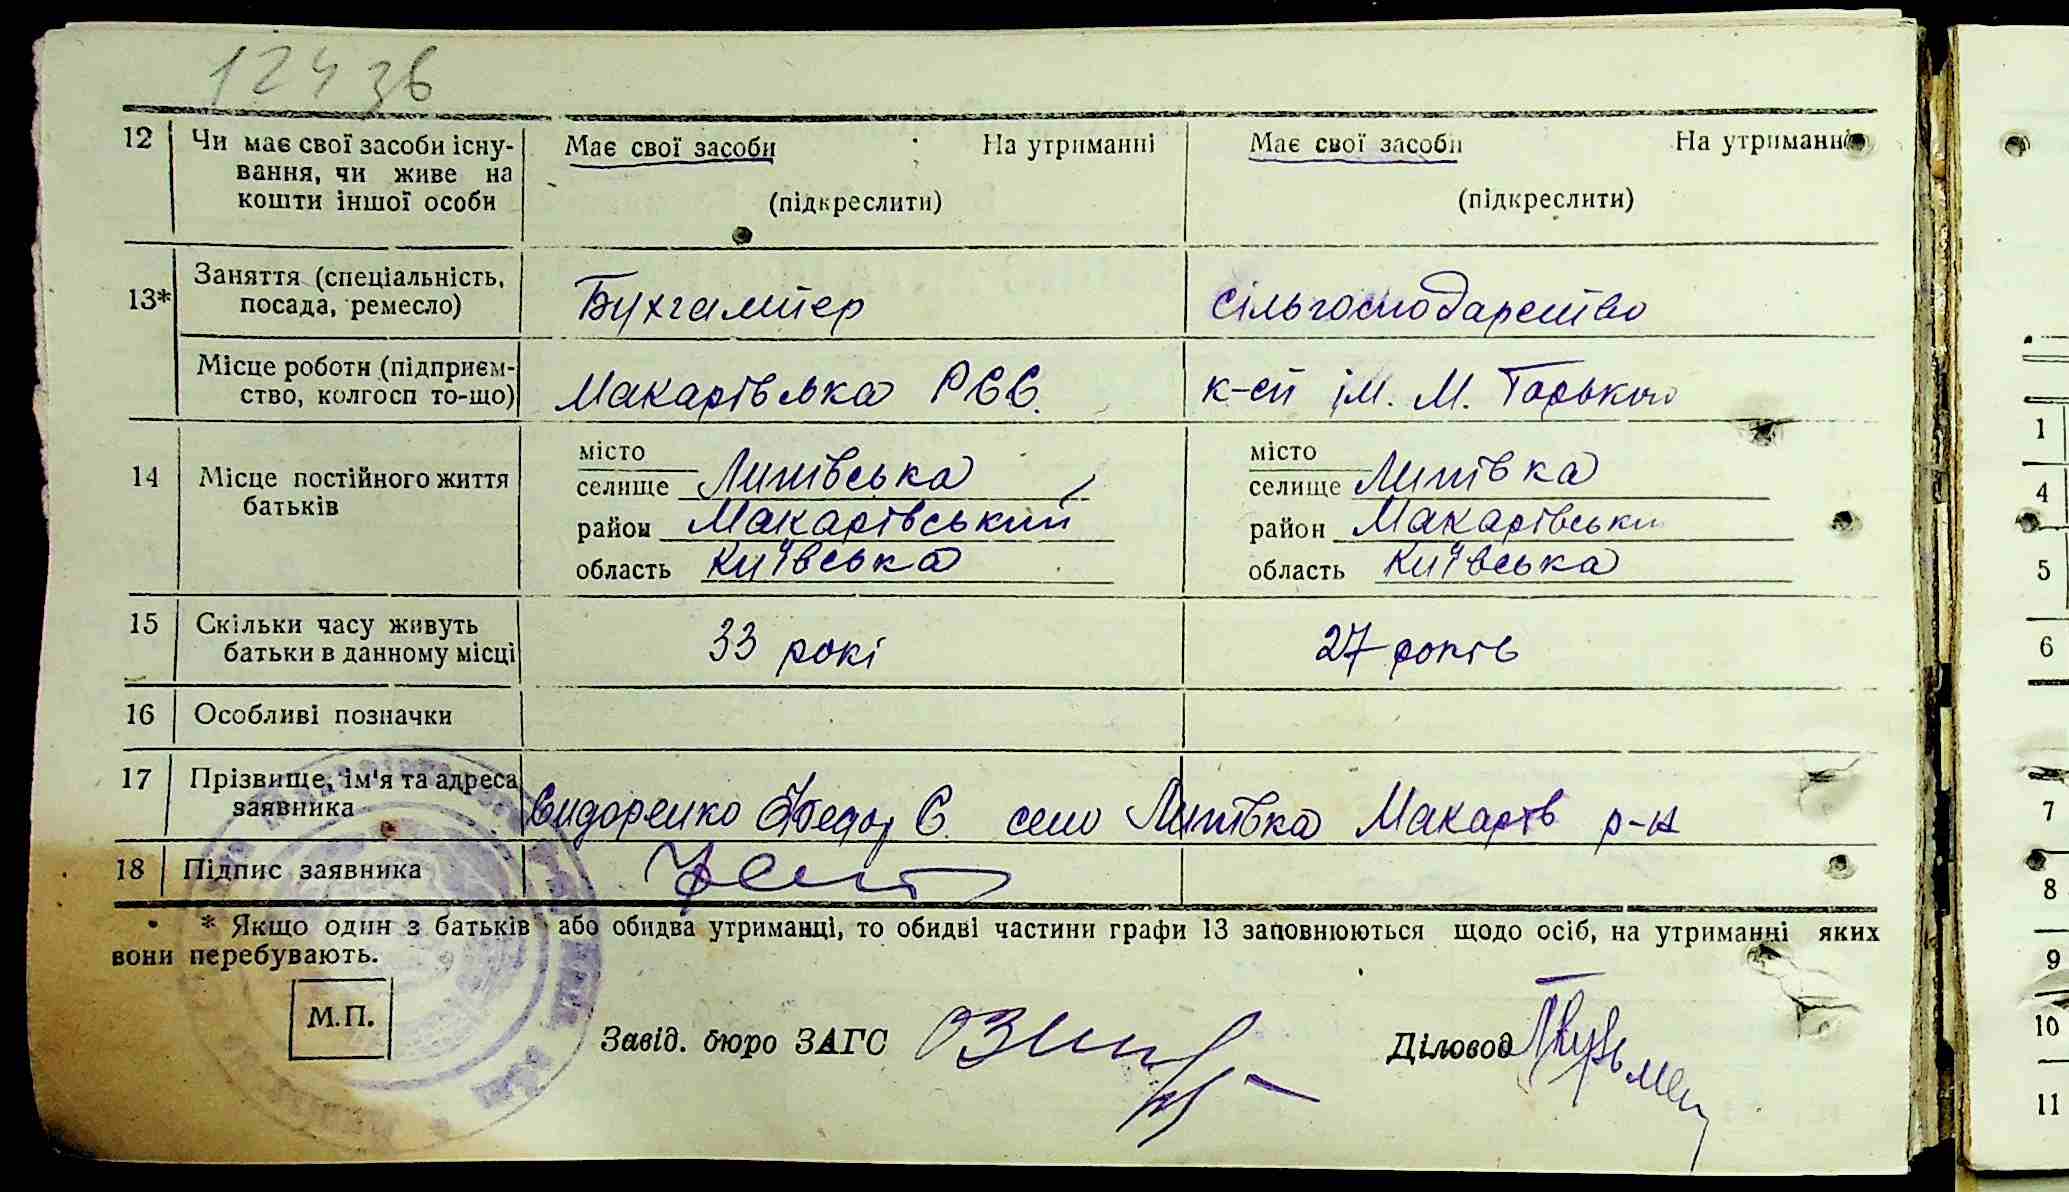 124 зв
12 Чи має свої засоби існу- Має свої засоби На утриманні Має свої засоби На утриманні
вання, чи живе на
кошти іншої особи (підкреслити) (підкреслити)
Заняття (спеціальність,
13* посада, ремесло) Бухгалтер сільгосподарство
Місце роботи (підприєм-
ство, колгосп то-що) Макарівська РСС. к-сп ім. М. Горького
місто місто
14 Місце постійного життя селище Липівська селище Липівка
батьків район Макарівський район Макарівськи
область Київська область Київська
15 Скільки часу живуть
батьки в данному місці 33 рокі 27 років
16 Особливі позначки
17 Прізвище, ім'я та адреса
заявника Сидоренко Федор Є. село Липівка Макарів р-н
18 Підпис заявника
* Якщо один з батьків або обидва утриманці, то обидві частини графи 13 заповнюються щодо осіб, на утриманні яких
вони перебувають.
М.П.
Завід. бюро ЗАГС Діловод
1
4
5
6
7
8
9
10
11